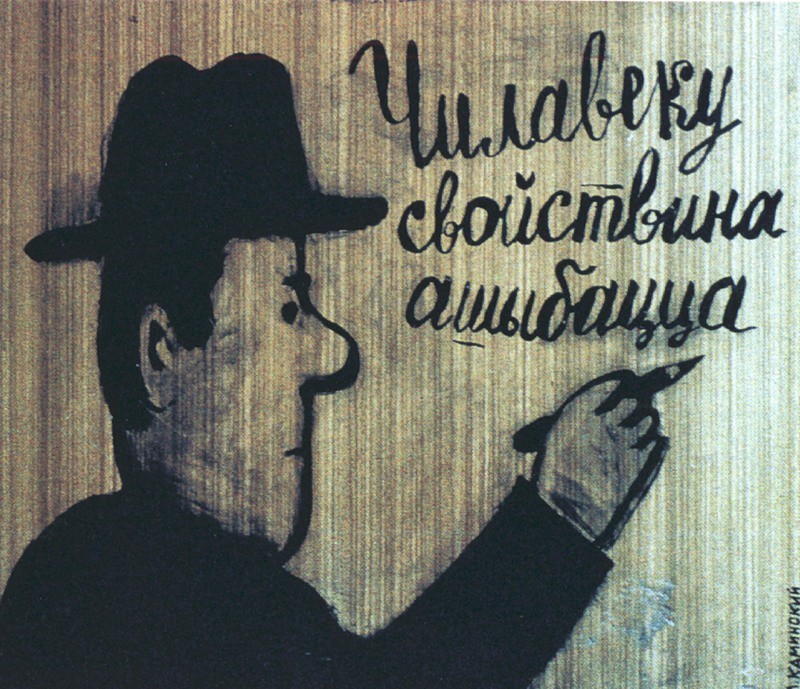 Чилавеку
свойствина
ашыбацца
КАМИНСКИЙ